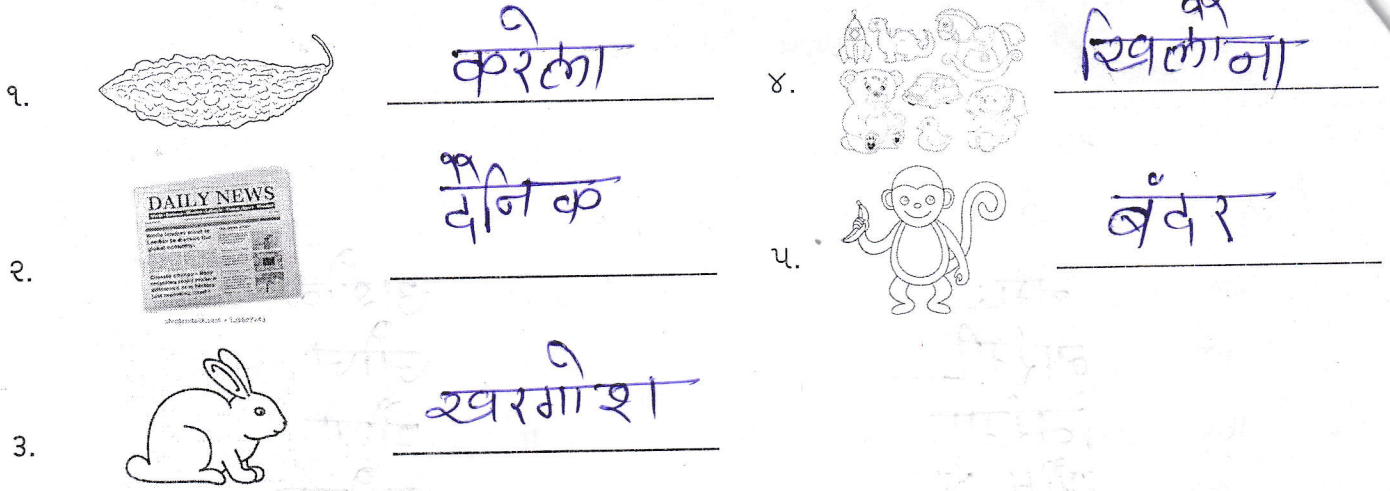 १. करेला
DAILY NEWS
२. दैनिक
३. खरगोश
४. खिलौना
५. बंदर